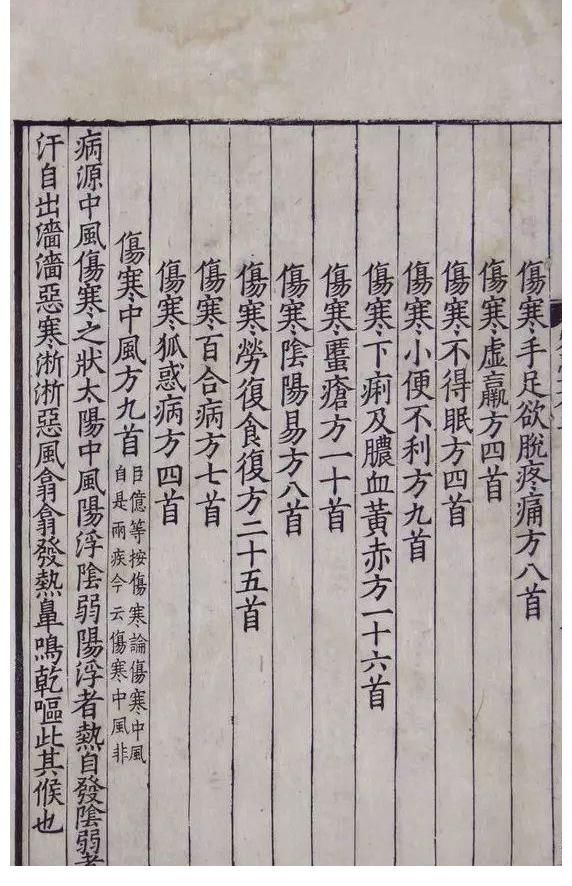 傷寒手足欲脫疼痛方八首
傷寒虛羸方四首
傷寒不得眠方四首
傷寒小便不利方九首
傷寒下痢及膿血黃赤方一十六首
傷寒䘌瘡方一十首
傷寒陰陽易方八首
傷寒勞復食復方二十五首
傷寒百合病方七首
傷寒狐惑病方四首
傷寒中風方九首
臣億等按傷寒論傷寒中風
自是兩疾今云傷寒中風非
病源中風傷寒之狀太陽中風陽浮陰弱陽浮者熱自發陰弱者
汗自出濇濇惡寒淅淅惡風翕翕發熱鼻鳴乾嘔此其候也